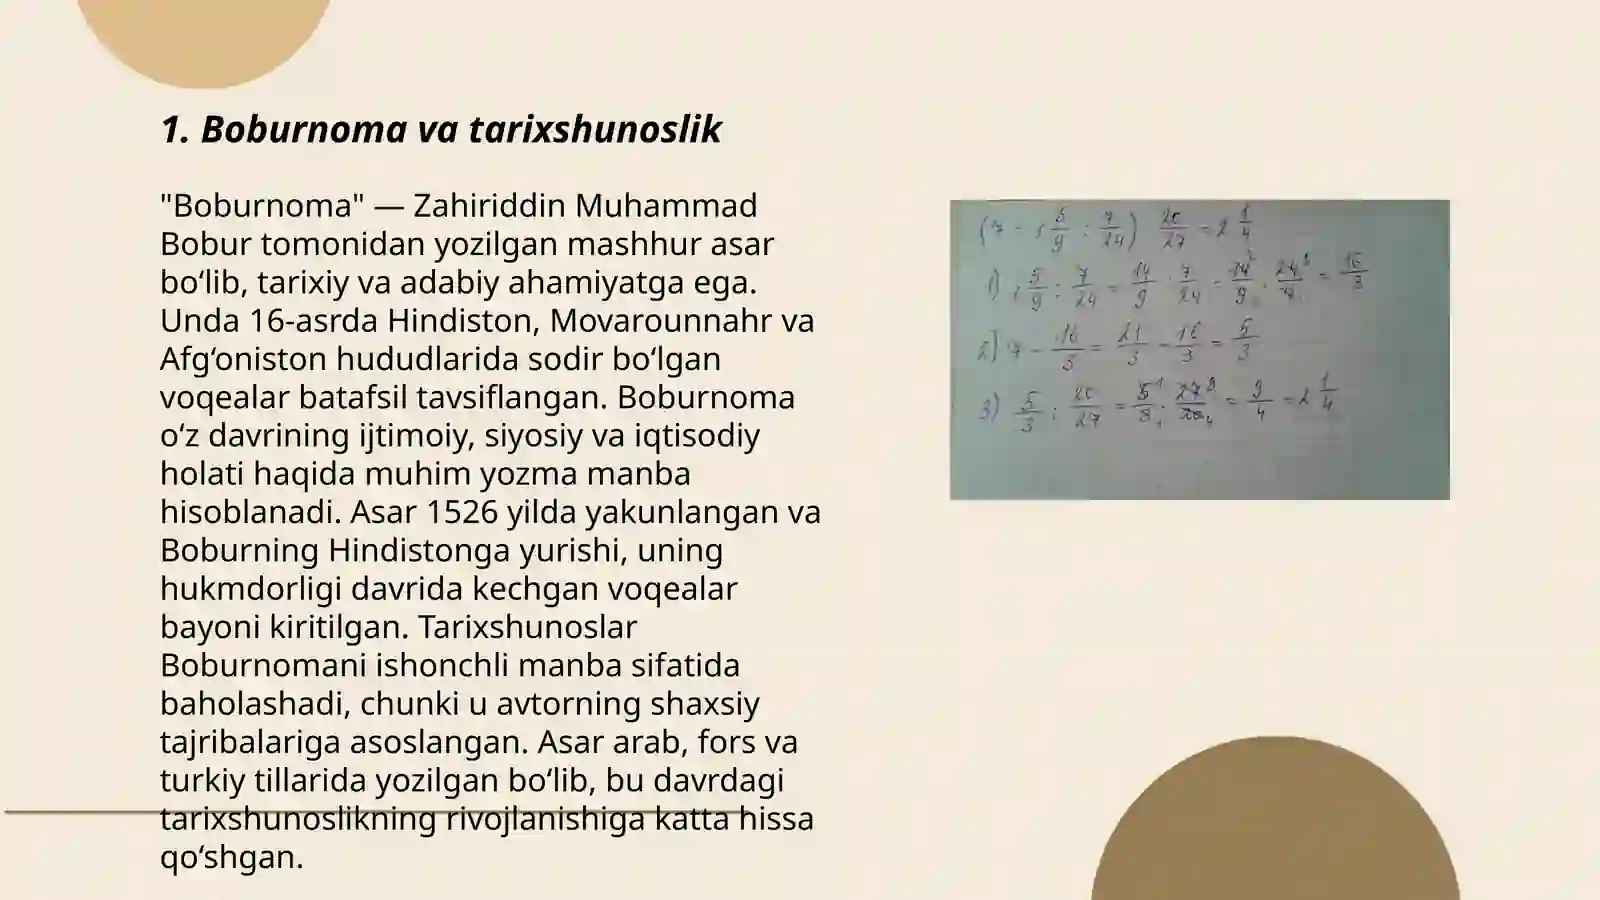 1. Boburnoma va tarixshunoslik
"Boburnoma" — Zahiriddin Muhammad
Bobur tomonidan yozilgan mashhur asar
bo‘lib, tarixiy va adabiy ahamiyatga ega.
Unda 16-asrda Hindiston, Movarounnahr va
Afg‘oniston hududlarida sodir bo‘lgan
voqealar batafsil tavsiflangan. Boburnoma
o‘z davrining ijtimoiy, siyosiy va iqtisodiy
holati haqida muhim yozma manba
hisoblanadi. Asar 1526 yilda yakunlangan va
Boburning Hindistonga yurishi, uning
hukmdorligi davrida kechgan voqealar
bayoni kiritilgan. Tarixshunoslar
Boburnomani ishonchli manba sifatida
baholashadi, chunki u avtorning shaxsiy
tajribalariga asoslangan. Asar arab, fors va
turkiy tillarida yozilgan bo‘lib, bu davrdagi
tarixshunoslikning rivojlanishiga katta hissa
qo‘shgan.
2) 7 - 16/3 = 21/3 - 16/3 = 5/3